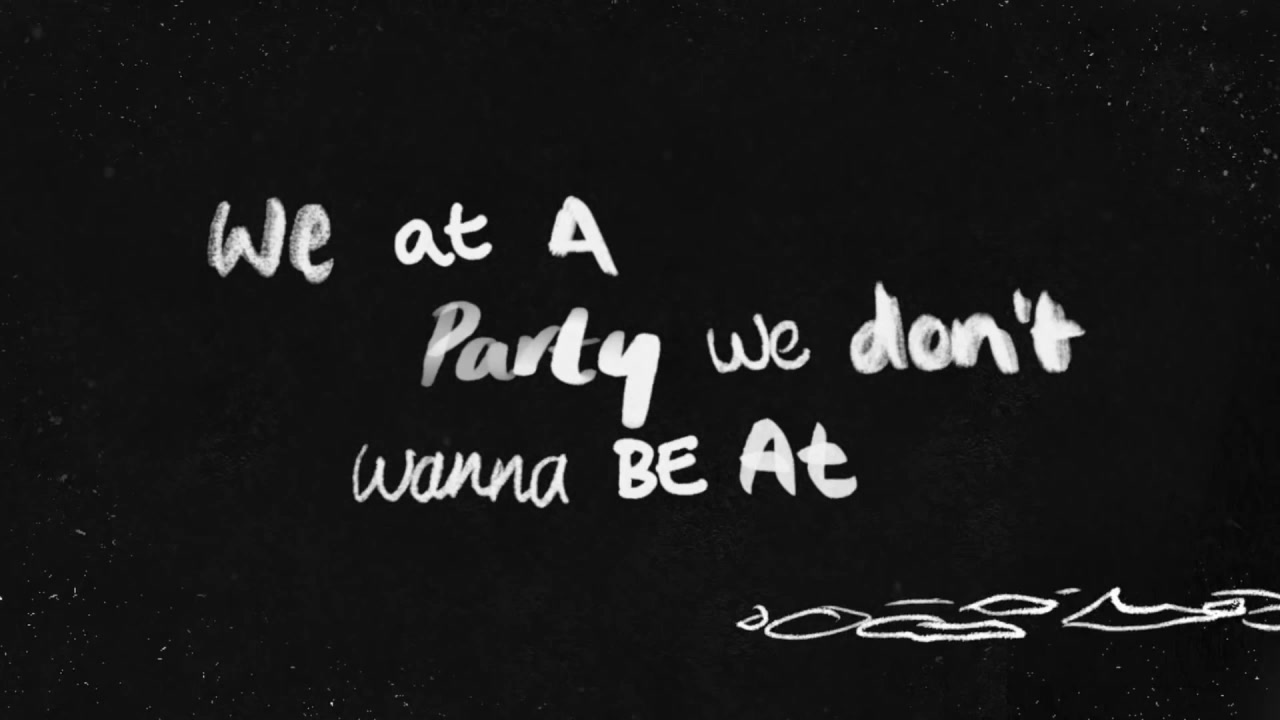 We at A
Party we don't
wanna BE At